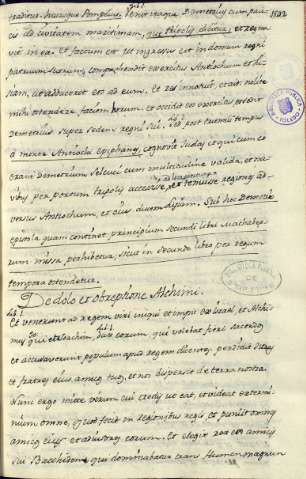 1582
venit itaque Demetrius cum pau
cis ad civitatem maritimam, que tripolis dicitur, et regna
vit in ea. et factum est ut ingressus est in domum regni
patrum suorum, comprehendit exercitus Antiochum et Li
siam, ut adduceret eos ad eum. et res innotuit, et ait nolite
mihi ostendere faciem eorum et occidit eos exercitus et sedit
Demetrius super sedem regni sui. post tantum temporis
a morte Antiochi epiphanis, cognovit Judas et qui cum eo
erant Demetrium Seleuci cum multitudine valida, et na
vibus per portum tripolis accessisse, et tenuisse regiones ad
versus Antiochum, et eius ducem Lysiam. Sub hoc Demetrio
epistola quam continet principium secundi libri Machabeo
rum missa perhibetur, sicut in secundo libro per regum
tempora ostendetur.
De dolo et Alchimi.
Et venerunt ad regem viri iniqui et impii ex Israel et Alchi
mus dux eorum qui volebat fieri sacerdos
et accusaverunt populum apud regem dicentes, perdidit Judas
et fratres eius amicos tuos, et nos dispersit de terra nostra
Nunc ergo mitte virum cui credis ut eat, et videat extermi
nium omne, quod fecit in regionibus regis et puniat omnes
amicos eius et adiutores eorum. Et elegit rex ex amicis
sui Bacchidem qui dominabatur trans flumen magnum